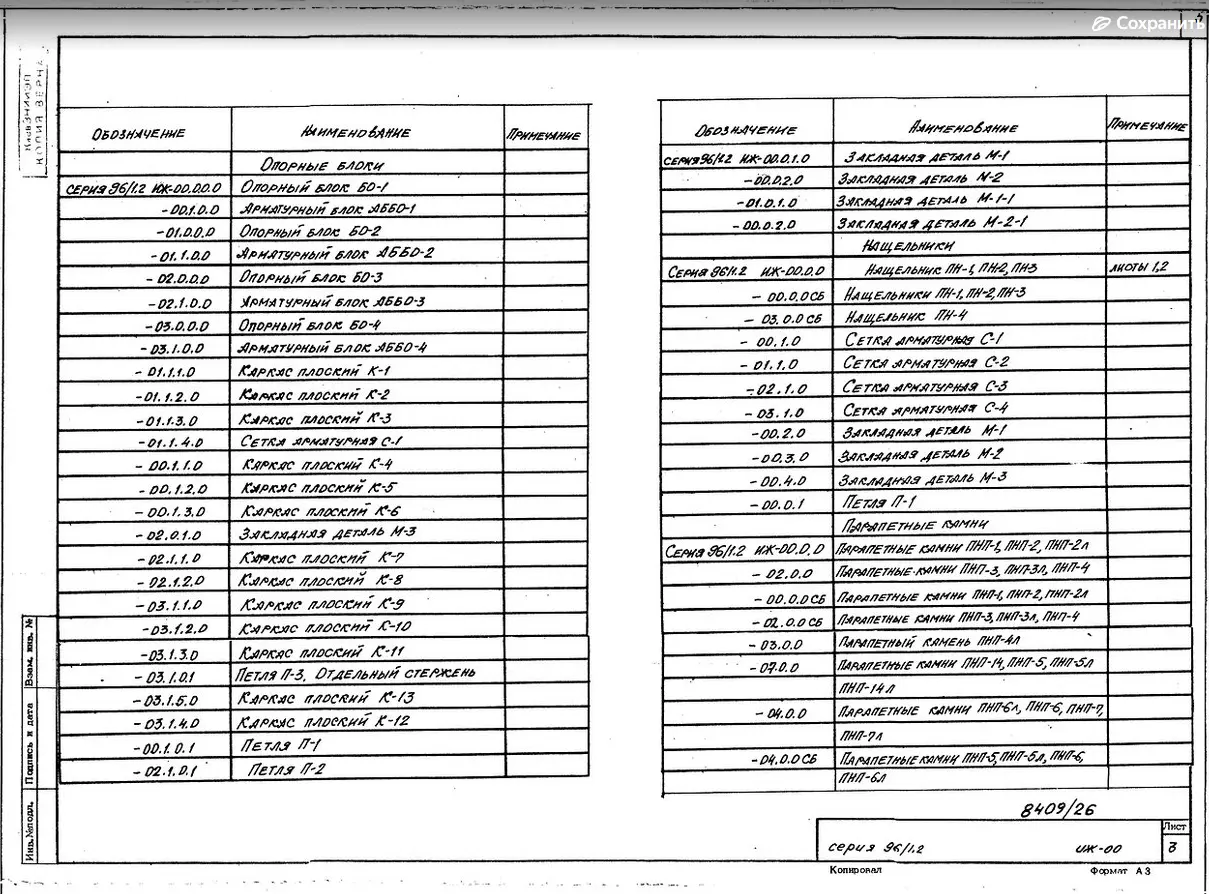 Сохранить
КОПИЯ ВЕРНА
ОБОЗНАЧЕНИЕ НАИМЕНОВАНИЕ ПРИМЕЧАНИЕ
ОПОРНЫЕ БЛОКИ
СЕРИЯ 96/1.2 ИЖ-00.0.0.0 ОПОРНЫЙ БЛОК БО-1
-00.1.0.0 АРМАТУРНЫЙ БЛОК АББО-1
-01.0.0.0 ОПОРНЫЙ БЛОК БО-2
-01.1.0.0 АРМАТУРНЫЙ БЛОК АББО-2
-02.0.0.0 ОПОРНЫЙ БЛОК БО-3
-02.1.0.0 АРМАТУРНЫЙ БЛОК АББО-3
-03.0.0.0 ОПОРНЫЙ БЛОК БО-4
-03.1.0.0 АРМАТУРНЫЙ БЛОК АББО-4
-01.1.1.0 КАРКАС ПЛОСКИЙ К-1
-01.1.2.0 КАРКАС ПЛОСКИЙ К-2
-01.1.3.0 КАРКАС ПЛОСКИЙ К-3
-01.1.4.0 СЕТКА АРМАТУРНАЯ С-1
-00.1.1.0 КАРКАС ПЛОСКИЙ К-4
-00.1.2.0 КАРКАС ПЛОСКИЙ К-5
-00.1.3.0 КАРКАС ПЛОСКИЙ К-6
-02.0.1.0 ЗАКЛАДНАЯ ДЕТАЛЬ М-3
-02.1.1.0 КАРКАС ПЛОСКИЙ К-7
-02.1.2.0 КАРКАС ПЛОСКИЙ К-8
-03.1.1.0 КАРКАС ПЛОСКИЙ К-9
-03.1.2.0 КАРКАС ПЛОСКИЙ К-10
-03.1.3.0 КАРКАС ПЛОСКИЙ К-11
-03.1.0.1 ПЕТЛЯ П-3, ОТДЕЛЬНЫЙ СТЕРЖЕНЬ
-03.1.5.0 КАРКАС ПЛОСКИЙ К-13
-03.1.4.0 КАРКАС ПЛОСКИЙ К-12
-00.1.0.1 ПЕТЛЯ П-1
-02.1.0.1 ПЕТЛЯ П-2
ОБОЗНАЧЕНИЕ НАИМЕНОВАНИЕ ПРИМЕЧАНИЕ
СЕРИЯ 96/1.2 ИЖ-00.0.1.0 ЗАКЛАДНАЯ ДЕТАЛЬ М-1
-00.0.2.0 ЗАКЛАДНАЯ ДЕТАЛЬ М-2
-01.0.1.0 ЗАКЛАДНАЯ ДЕТАЛЬ М-1-1
-00.0.2.0 ЗАКЛАДНАЯ ДЕТАЛЬ М-2-1
НАЩЕЛЬНИКИ
СЕРИЯ 96/1.2 ИЖ-00.0.0 НАЩЕЛЬНИК ПН-1, ПН-2, ПН-3 ЛИСТЫ 1,2
-00.0.0 СБ НАЩЕЛЬНИКИ ПН-1, ПН-2, ПН-3
-03.0.0 СБ НАЩЕЛЬНИК ПН-4
-00.1.0 СЕТКА АРМАТУРНАЯ С-1
-01.1.0 СЕТКА АРМАТУРНАЯ С-2
-02.1.0 СЕТКА АРМАТУРНАЯ С-3
-03.1.0 СЕТКА АРМАТУРНАЯ С-4
-00.2.0 ЗАКЛАДНАЯ ДЕТАЛЬ М-1
-00.3.0 ЗАКЛАДНАЯ ДЕТАЛЬ М-2
-00.4.0 ЗАКЛАДНАЯ ДЕТАЛЬ М-3
-00.0.1 ПЕТЛЯ П-1
ПАРАПЕТНЫЕ КАМНИ
СЕРИЯ 96/1.2 ИЖ-00.0.0 ПАРАПЕТНЫЕ КАМНИ ПНП-1, ПНП-2, ПНП-2Л
-02.0.0 ПАРАПЕТНЫЕ КАМНИ ПНП-3, ПНП-3Л, ПНП-4
-00.0.0 СБ ПАРАПЕТНЫЕ КАМНИ ПНП-1, ПНП-2, ПНП-2Л
-02.0.0 СБ ПАРАПЕТНЫЕ КАМНИ ПНП-3, ПНП-3Л, ПНП-4
-03.0.0 ПАРАПЕТНЫЙ КАМЕНЬ ПНП-4Л
-07.0.0 ПАРАПЕТНЫЕ КАМНИ ПНП-14, ПНП-5, ПНП-5Л
ПНП-14Л
-04.0.0 ПАРАПЕТНЫЕ КАМНИ ПНП-6Л, ПНП-6, ПНП-7,
ПНП-7Л
-04.0.0 СБ ПАРАПЕТНЫЕ КАМНИ ПНП-5, ПНП-5Л, ПНП-6,
ПНП-6Л
Взам. инв. №
Подпись и дата
Инв. № подл.
8409/26
серия 96/1.2 ИЖ-00
Лист
3
Копировал Формат А3